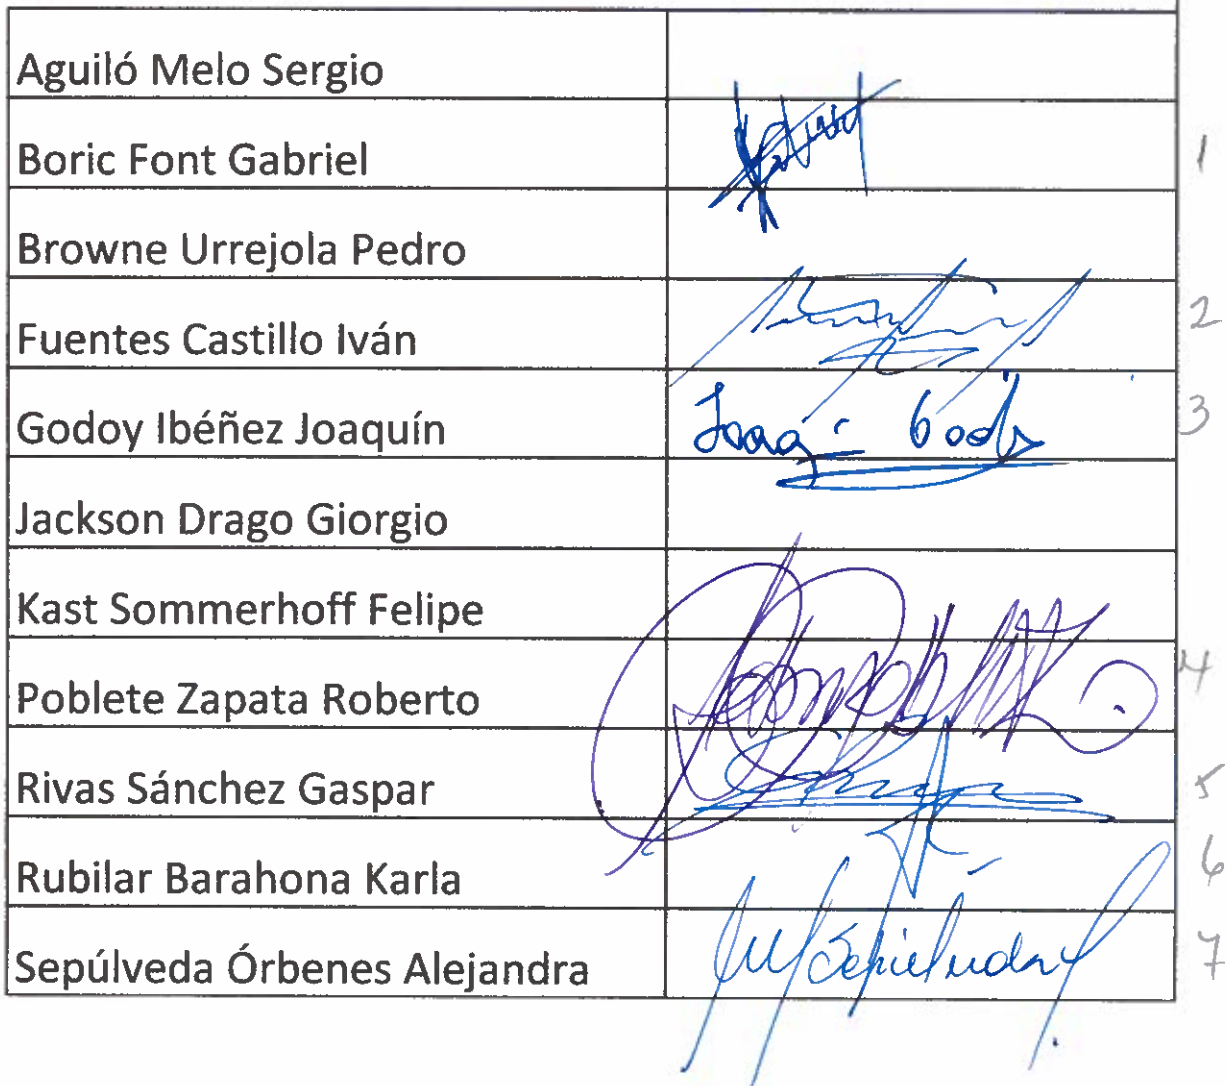 Aguiló Melo Sergio
Boric Font Gabriel 1
Browne Urrejola Pedro
Fuentes Castillo Iván 2
Godoy Ibéñez Joaquín Joaquín Godoy 3
Jackson Drago Giorgio
Kast Sommerhoff Felipe
Poblete Zapata Roberto 4
Rivas Sánchez Gaspar 5
Rubilar Barahona Karla 6
Sepúlveda Órbenes Alejandra 7